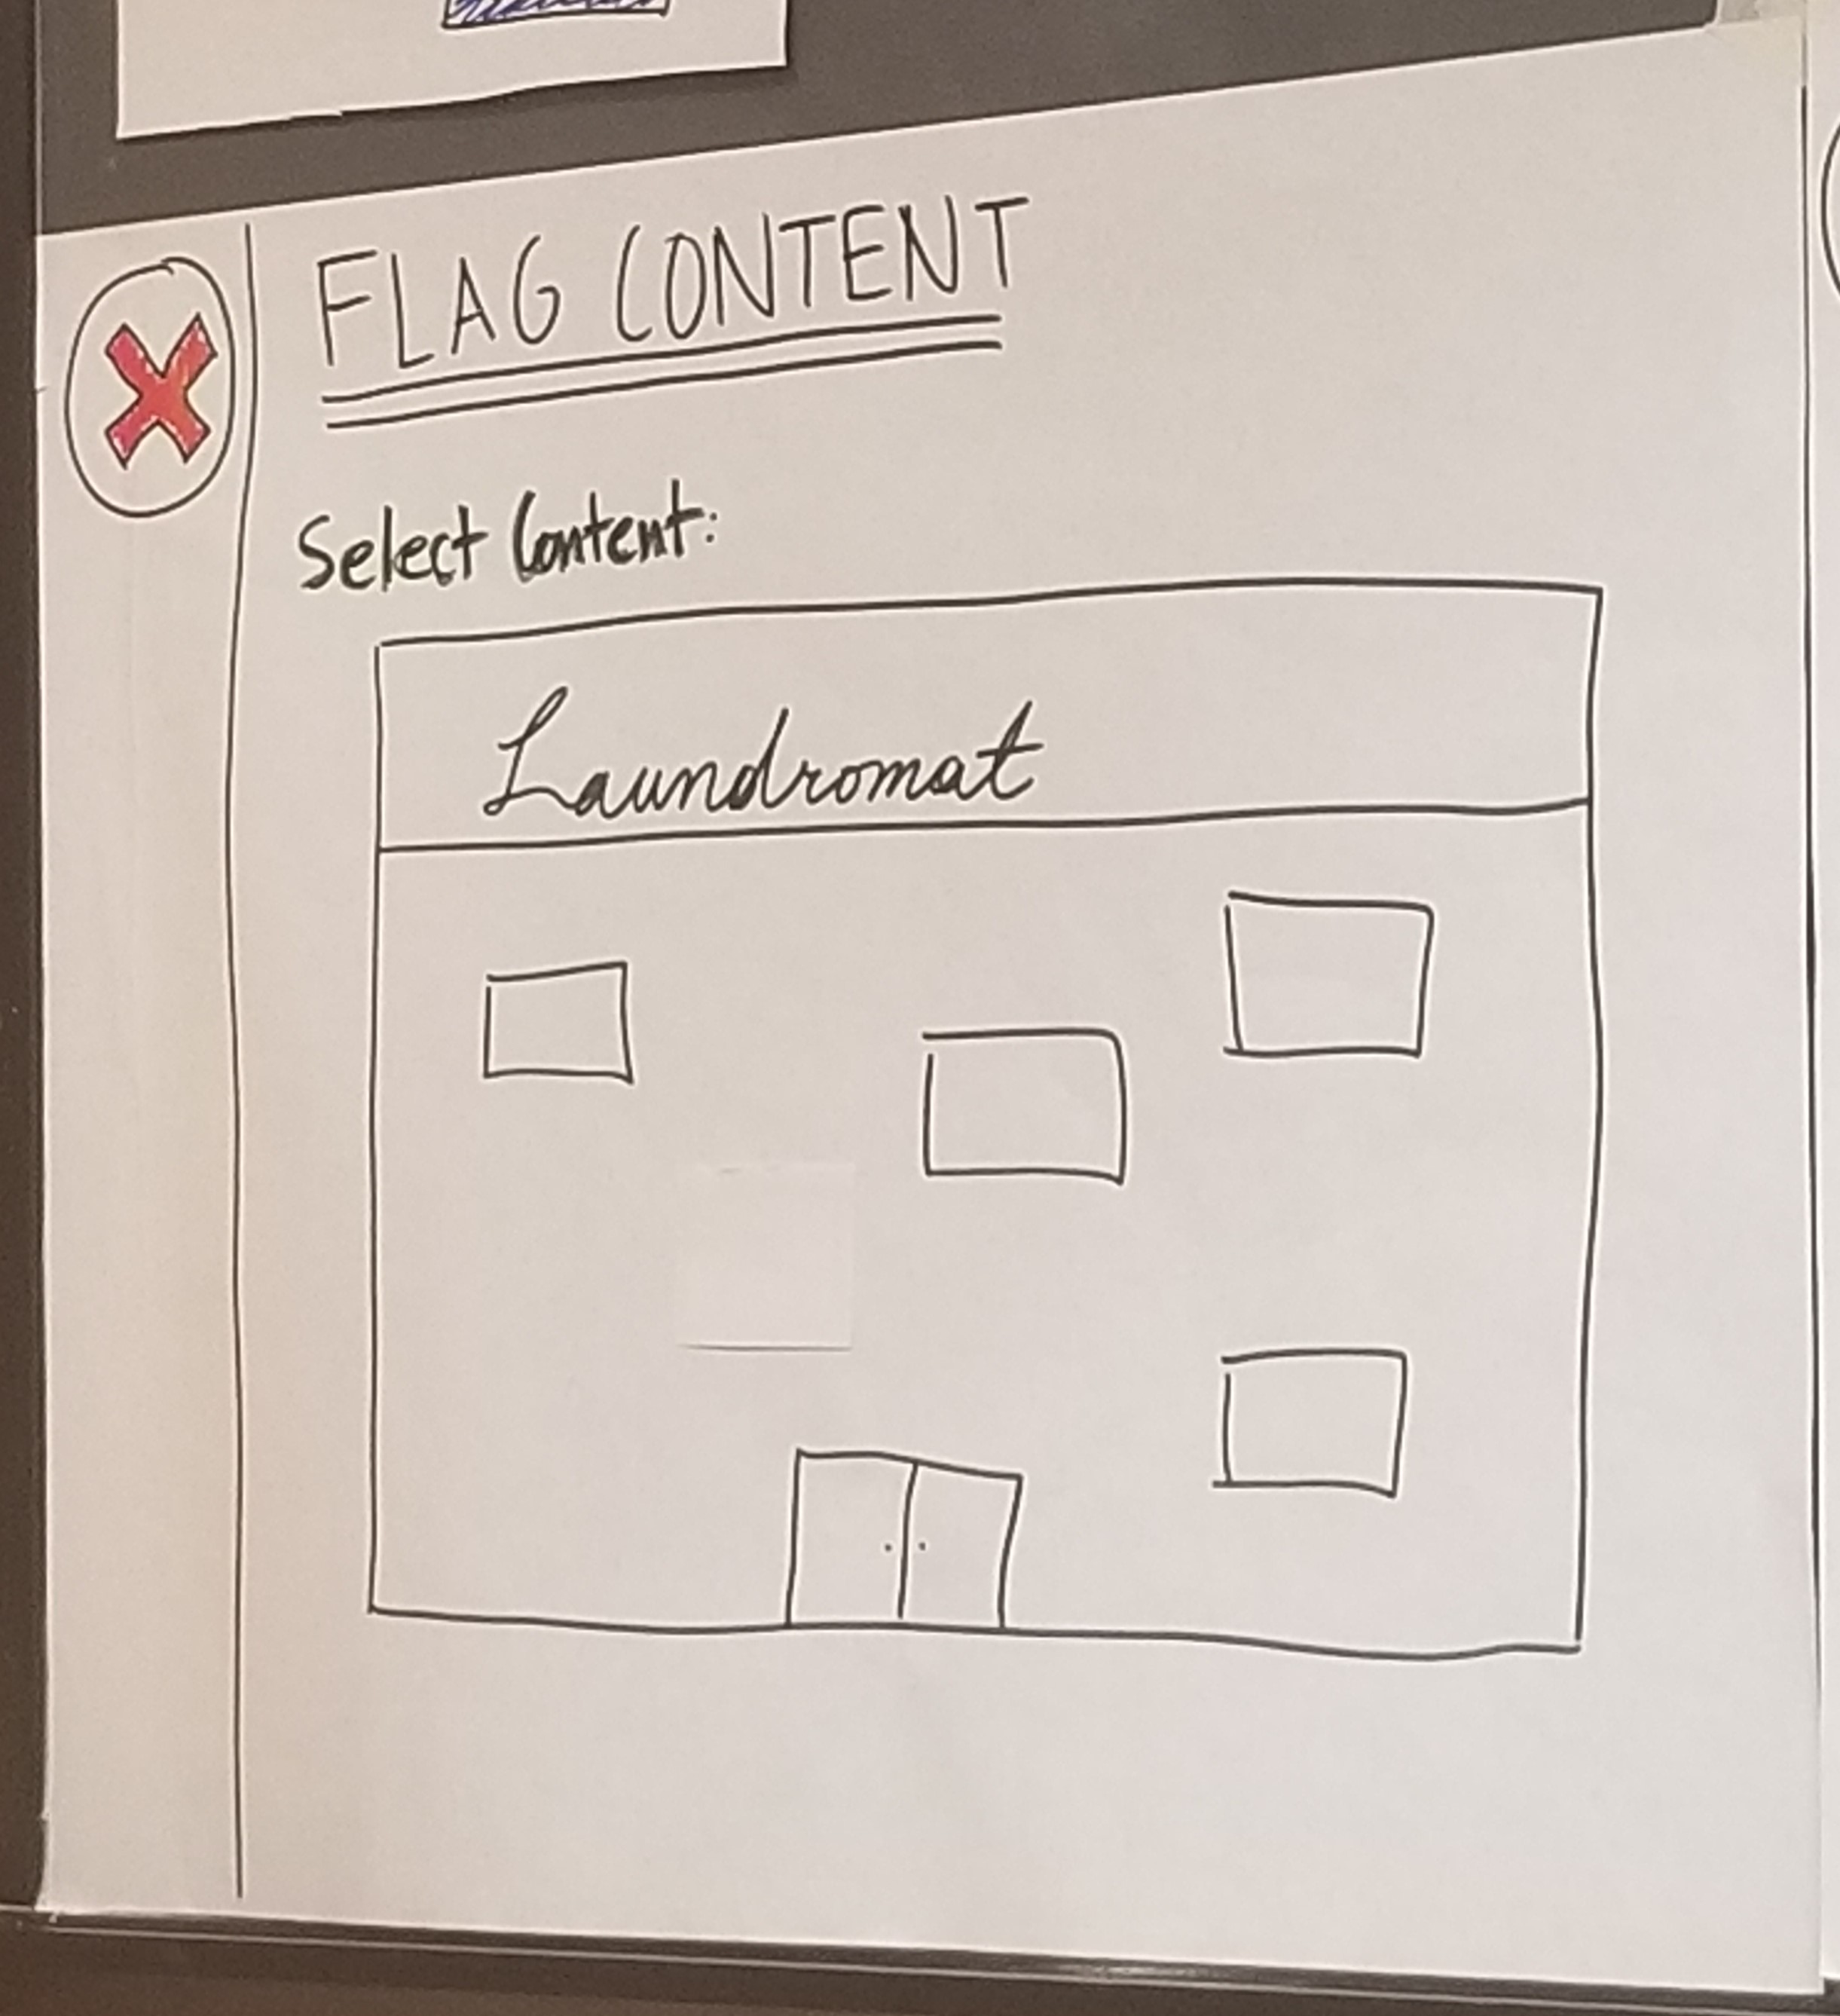 FLAG CONTENT
Select Content:
Laundromat